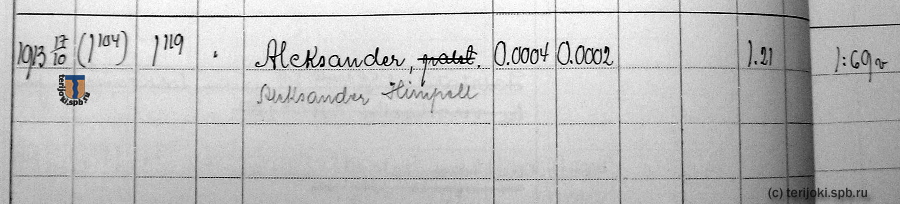 1913 17/10 (1104) 1119 " Aleksander, palst. 0.0004 0.0002 1.21 1:69
Aleksander Himpell
terijoki.spb.ru
(c) terijoki.spb.ru